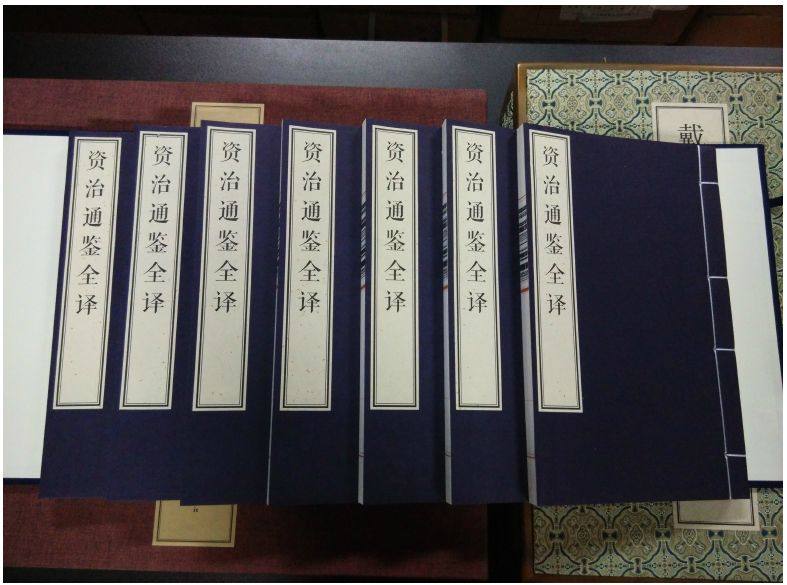 资治通鉴全译
资治通鉴全译
资治通鉴全译
资治通鉴全译
资治通鉴全译
资治通鉴全译
资治通鉴全译
戴